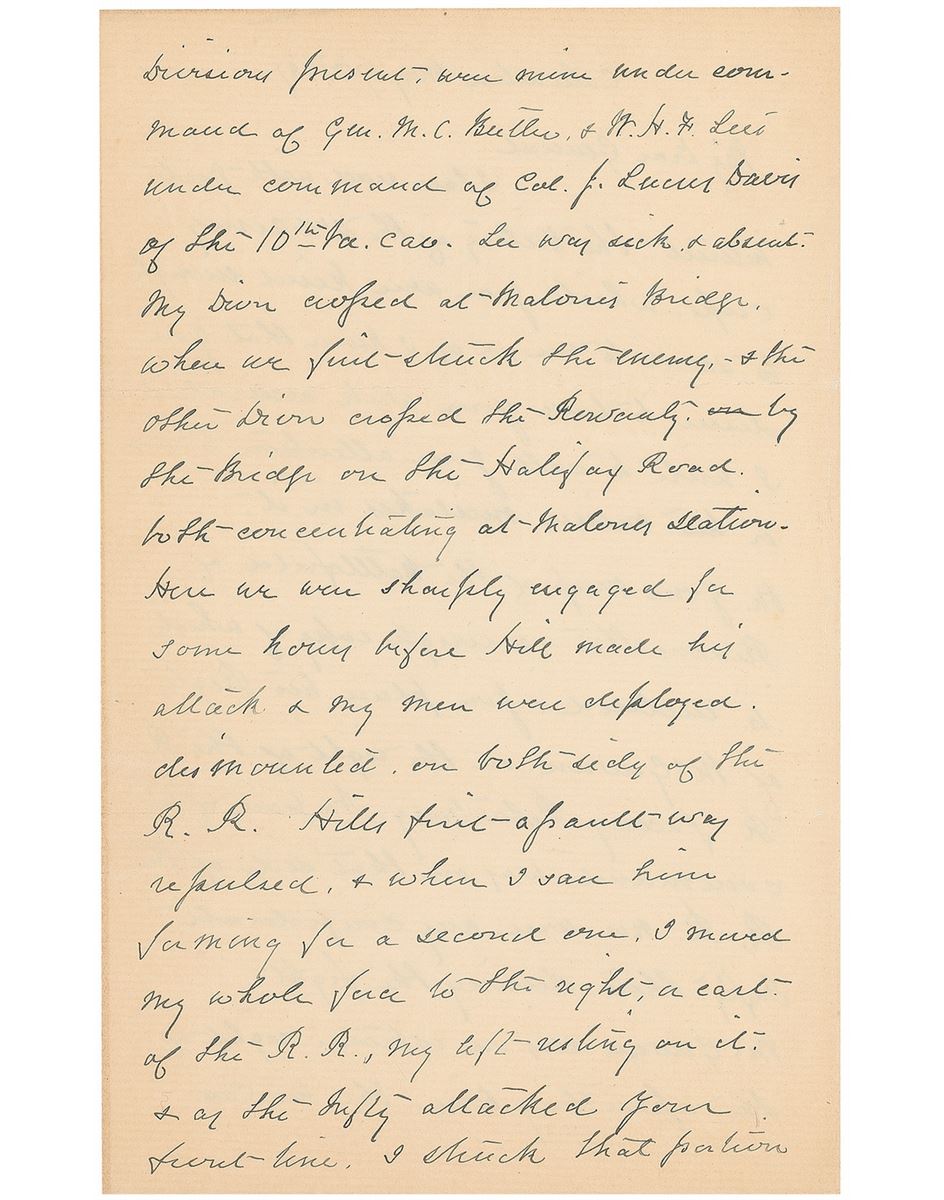 Divisions present, were mine under com-
mand of Gen. M. C. Butler, & W. H. F. Lees
under command of Col. J. Lucius Davis
of the 10th Va. Cav. Lee was sick & absent.
My Divn crossed at Malones Bridge,
when we first struck the enemy, - & the
other Divn crossed the Rowanty, on by
the Bridge on the Halifax Road.
both concentrating at Malones Station.
Here we were sharply engaged for
some hours before Hill made his
attack & my men were deployed,
dismounted, on both sides of the
R. R. Hills first assault was
repulsed, & when I saw him
forming for a second one, I moved
my whole force to the right, or east
of the R. R., my left resting on it.
& as the Infty attacked your
front line, I struck that portion